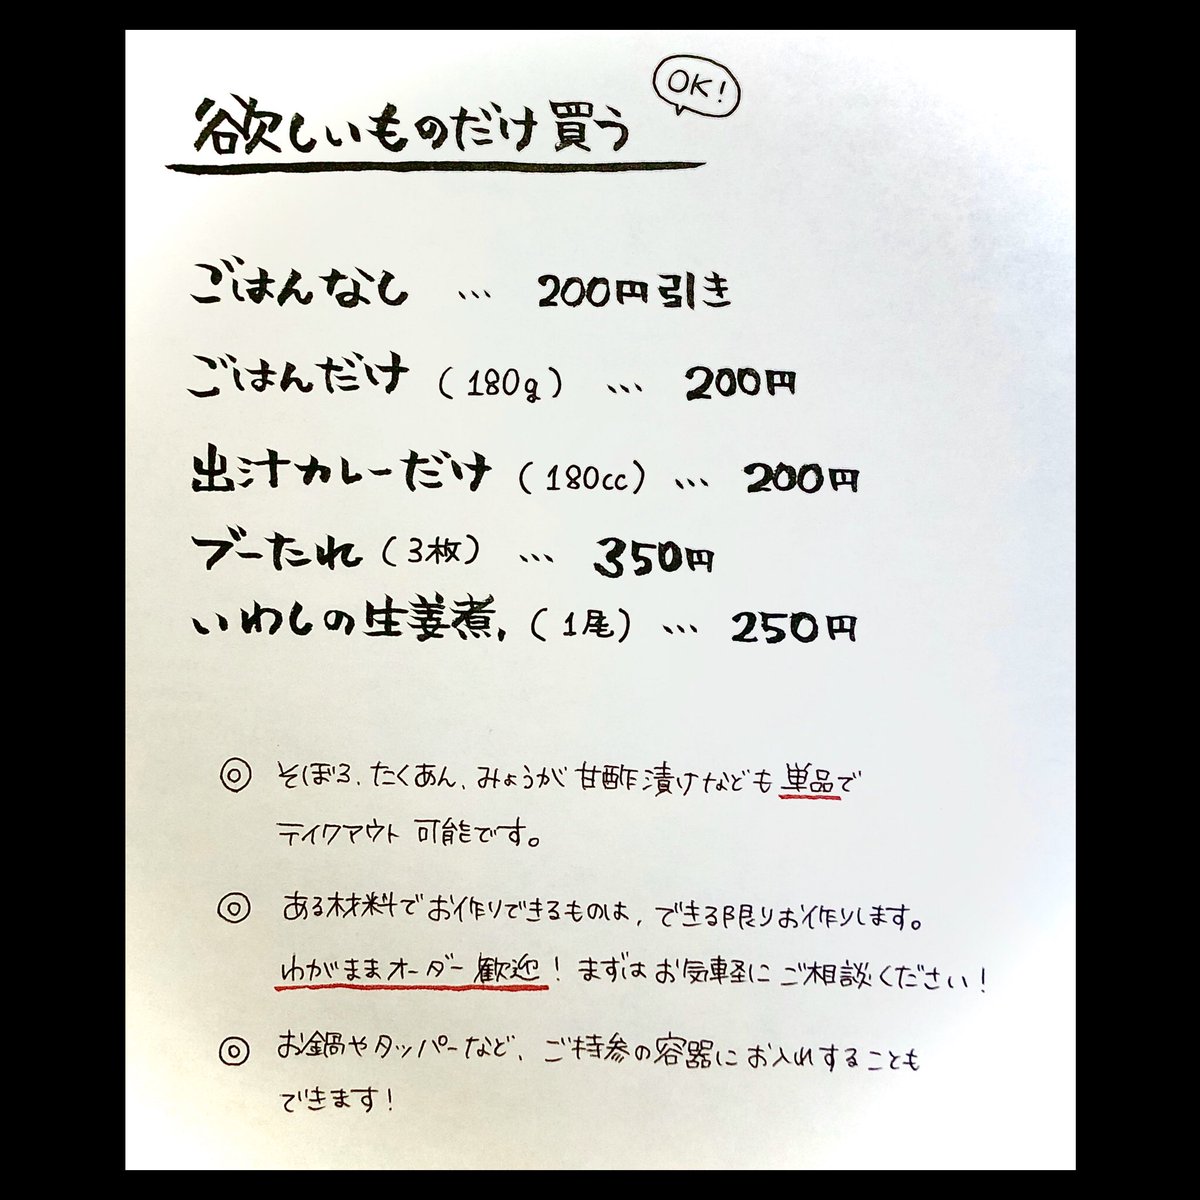 欲しいものだけ買う
OK!
ごはんなし … 200円引き
ごはんだけ (180g) … 200円
出汁カレーだけ (180cc) … 200円
ブーたれ (3枚) … 350円
いわしの生姜煮, (1尾) … 250円
◎ そぼろ、たくあん、みょうが甘酢漬けなども単品で
テイクアウト可能です。
◎ ある材料でお作りできるものは、できる限りお作りします。
わがままオーダー歓迎! まずはお気軽にご相談ください!
◎ お鍋やタッパーなど、ご持参の容器にお入れすることも
できます!